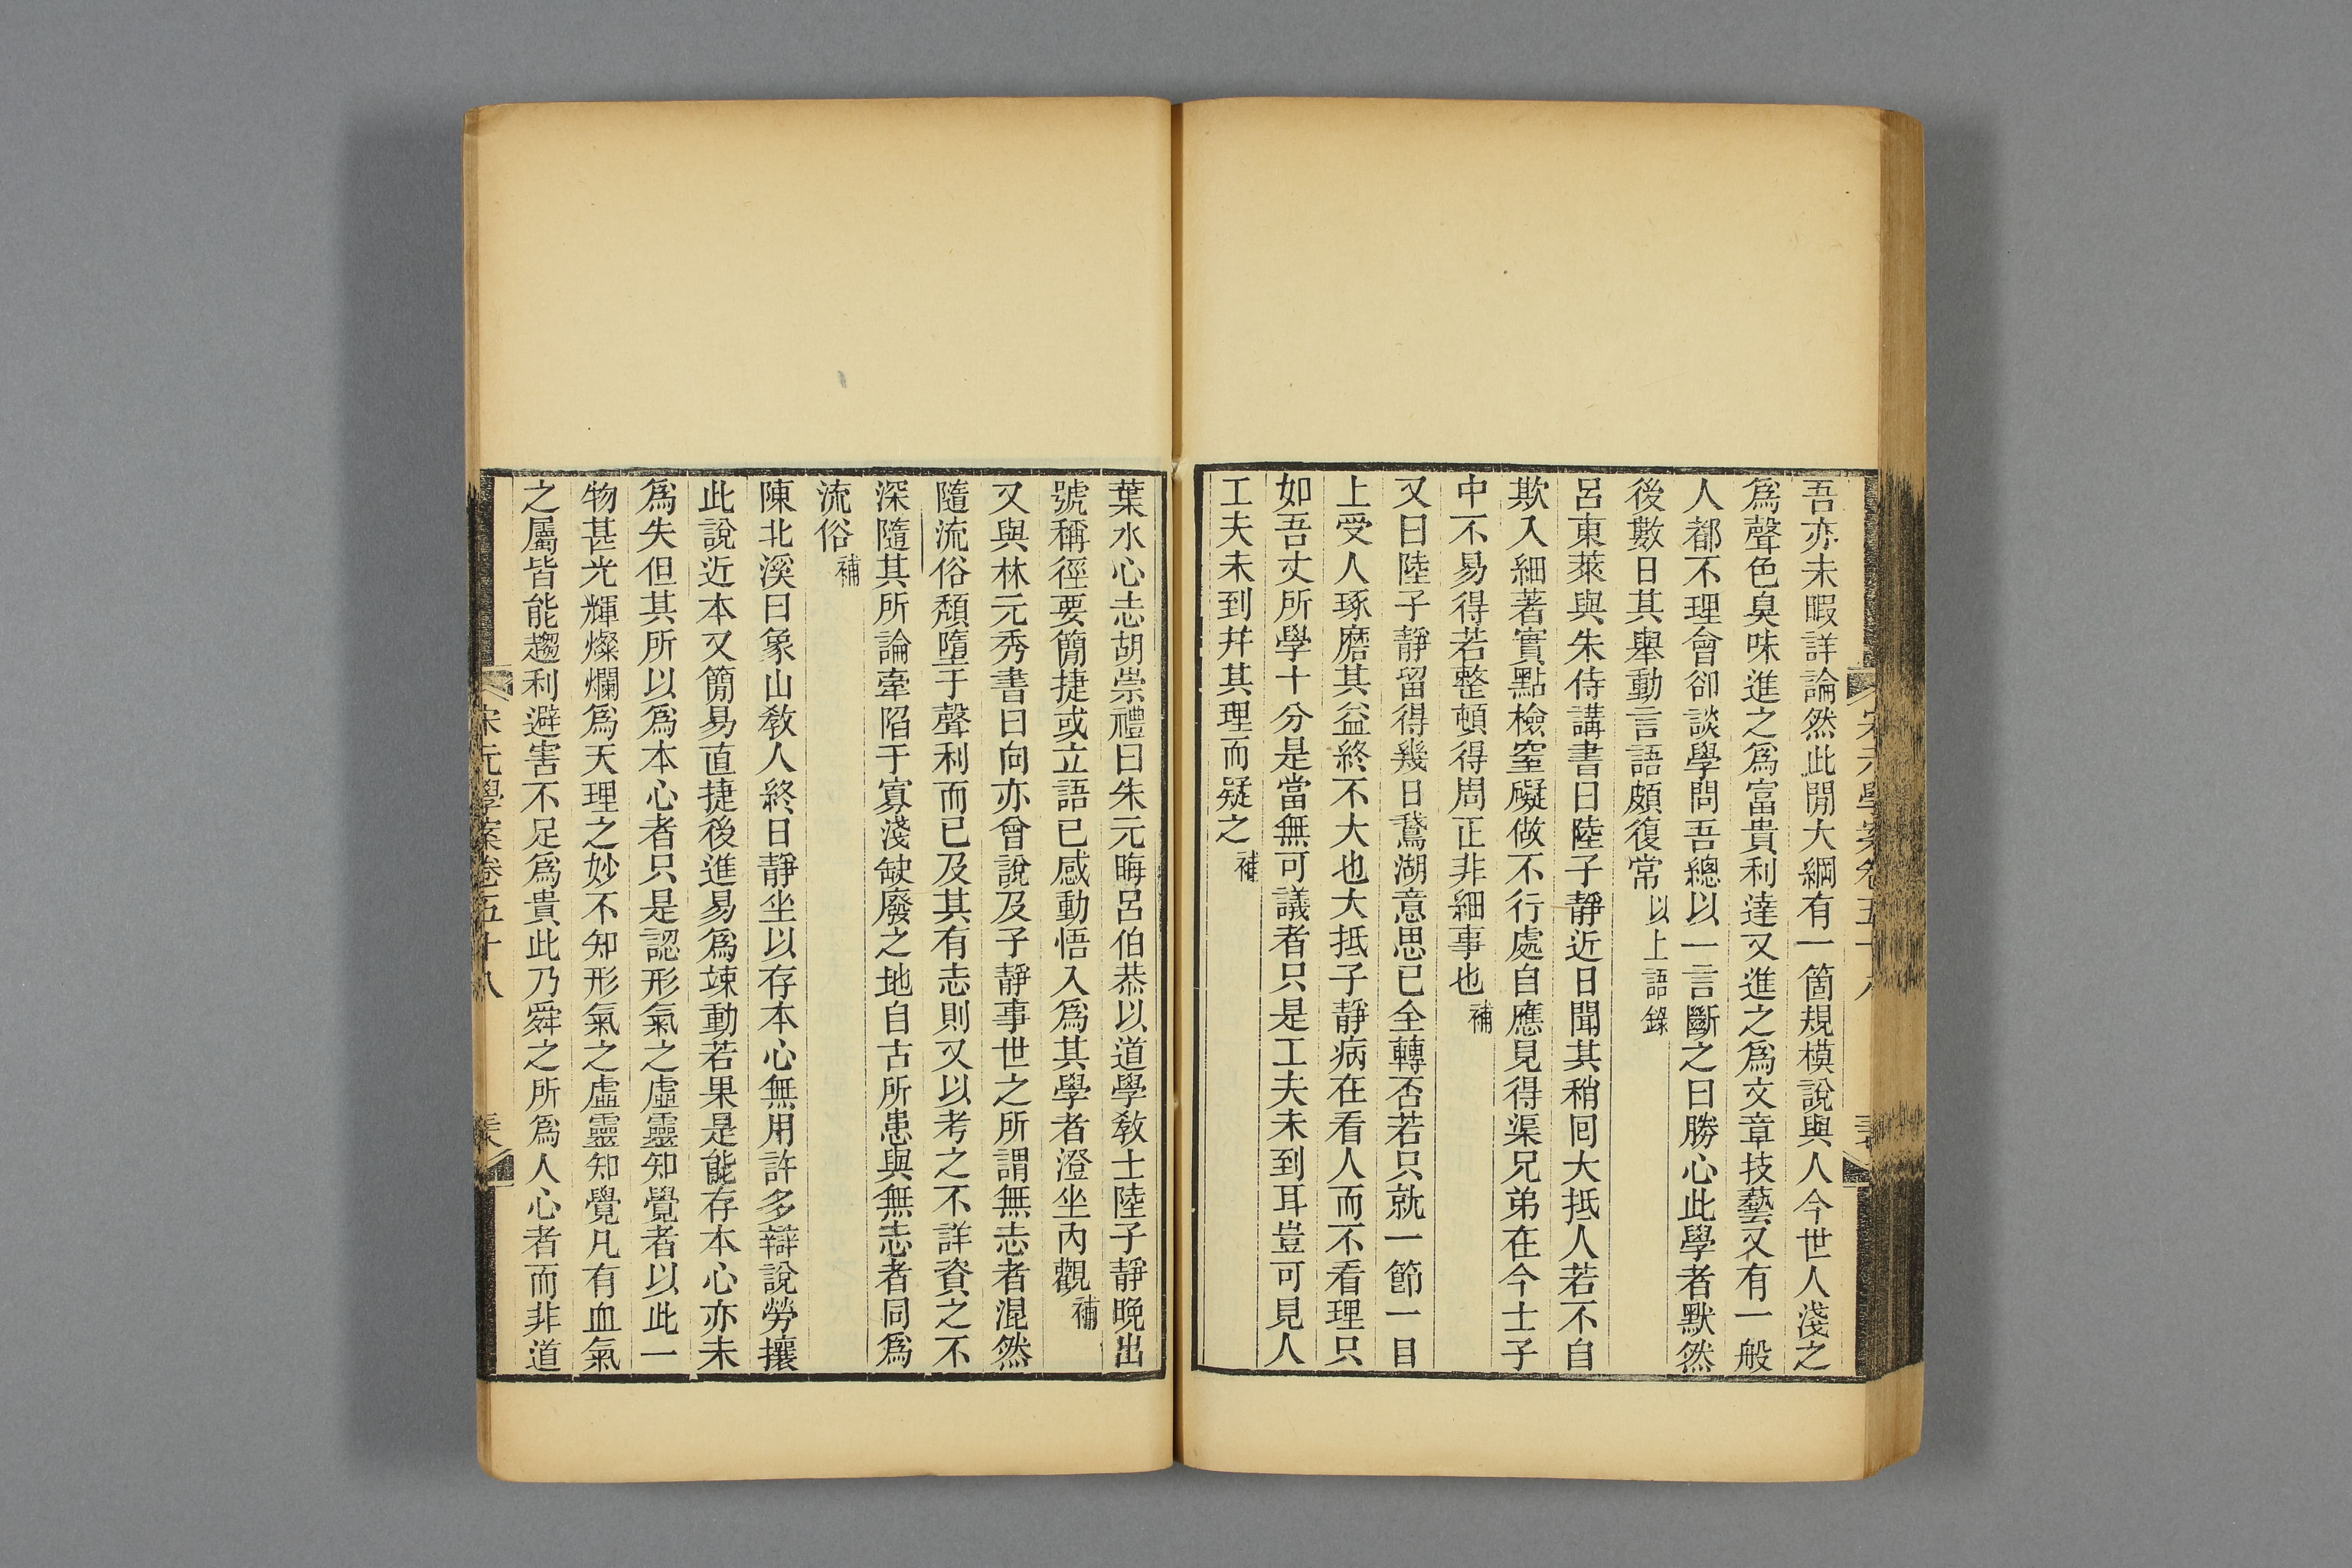 吾亦未暇詳論然此閒大綱有一箇規模說與人今世人淺之
爲聲色臭味進之爲富貴利達又進之爲文章技藝又有一般
人都不理會卻談學問吾總以一言斷之曰勝心此學者默然
後數日其舉動言語頗復常以上語錄
呂東萊與朱侍講書曰陸子靜近日聞其稍回大抵人若不自
欺入細著實點檢窒礙做不行處自應見得渠兄弟在今士子
中不易得若整頓得周正非細事也補
又曰陸子靜留得幾日鵞湖意思已全轉否若只就一節一目
上受人琢磨其益終不大也大抵子靜病在看人而不看理只
如吾丈所學十分是當無可議者只是工夫未到耳豈可見人
工夫未到幷其理而疑之補
葉水心志胡崇禮曰朱元晦呂伯恭以道學敎士陸子靜晚出
號稱徑要簡捷或立語已感動悟入爲其學者澄坐內觀補
又與林元秀書曰向亦曾說及子靜事世之所謂無志者混然
隨流俗頹墮于聲利而已及其有志則又以考之不詳資之不
深隨其所論牽陷于寡淺缺廢之地自古所患與無志者同爲
流俗補
陳北溪曰象山敎人終日靜坐以存本心無用許多辯說勞攘
此說近本又簡易直捷後進易爲竦動若果是能存本心亦未
爲失但其所以爲本心者只是認形氣之虛靈知覺者以此一
物甚光輝燦爛爲天理之妙不知形氣之虛靈知覺凡有血氣
之屬皆能趨利避害不足爲貴此乃舜之所爲人心者而非道
宋元學案卷五十八